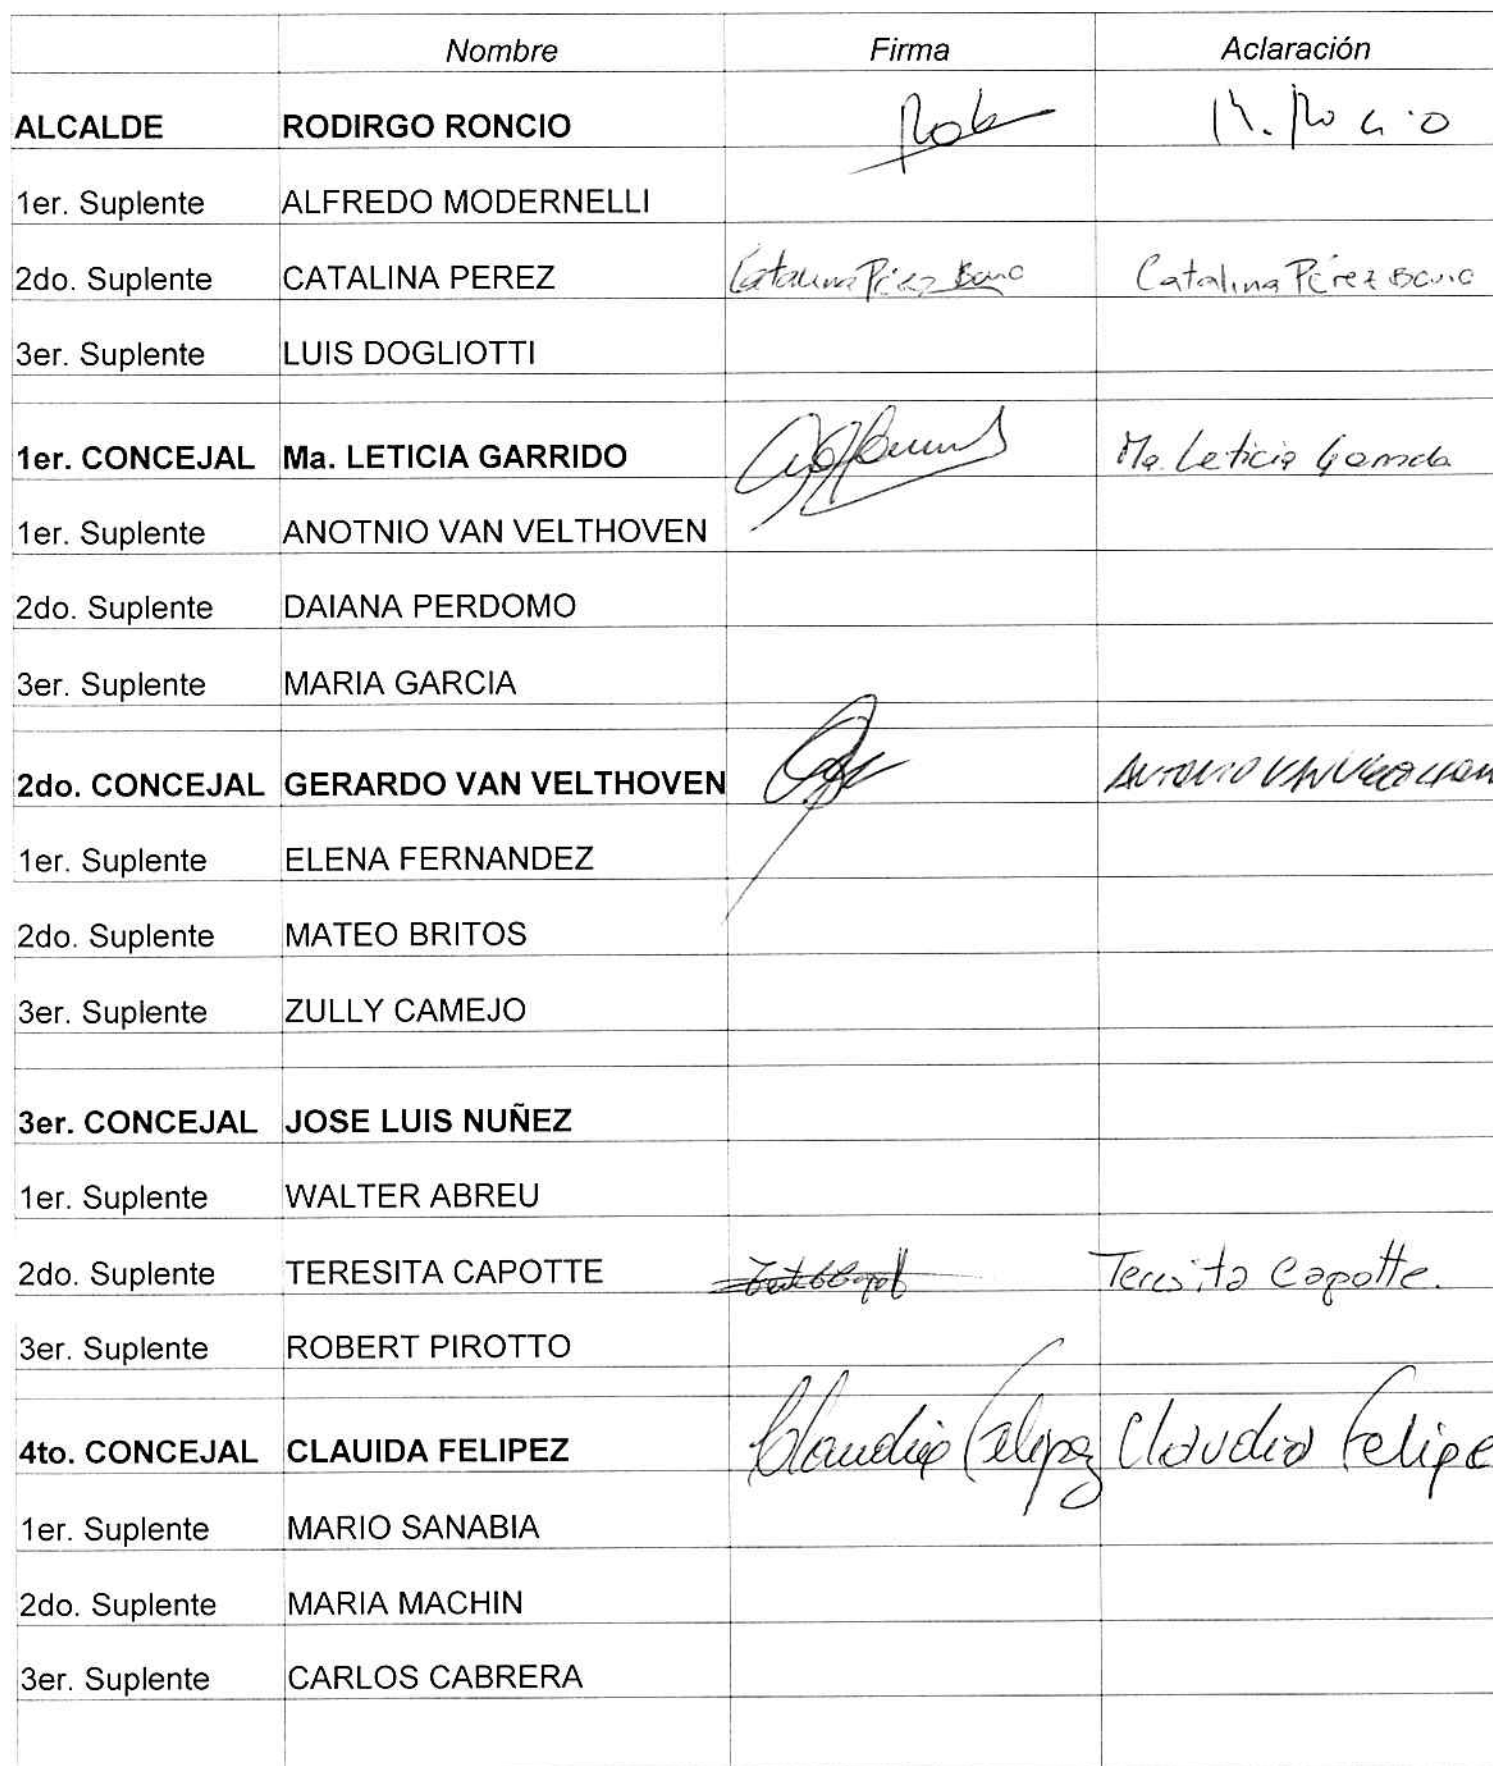 Nombre Firma Aclaración
ALCALDE RODIRGO RONCIO
1er. Suplente ALFREDO MODERNELLI
2do. Suplente CATALINA PEREZ Catalina Pérez Catalina Pérez
3er. Suplente LUIS DOGLIOTTI
1er. CONCEJAL Ma. LETICIA GARRIDO Ma. Leticia Garrido
1er. Suplente ANOTNIO VAN VELTHOVEN
2do. Suplente DAIANA PERDOMO
3er. Suplente MARIA GARCIA
2do. CONCEJAL GERARDO VAN VELTHOVEN ANTONIO VAN
1er. Suplente ELENA FERNANDEZ
2do. Suplente MATEO BRITOS
3er. Suplente ZULLY CAMEJO
3er. CONCEJAL JOSE LUIS NUÑEZ
1er. Suplente WALTER ABREU
2do. Suplente TERESITA CAPOTTE Teresita Capotte.
3er. Suplente ROBERT PIROTTO
4to. CONCEJAL CLAUIDA FELIPEZ Claudia Felipez Claudia Felipe
1er. Suplente MARIO SANABIA
2do. Suplente MARIA MACHIN
3er. Suplente CARLOS CABRERA